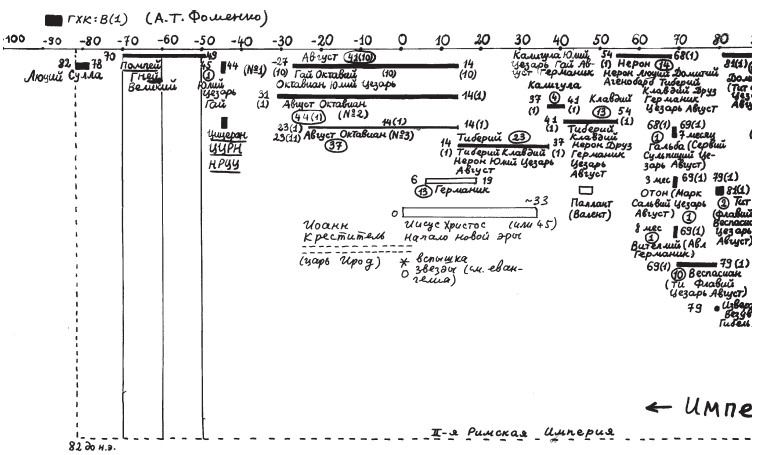 ГХК:В(1) (А.Т.Фоменко)
-100 -90 -80 -70 -60 -50 -40 -30 -20 -10 0 10 20 30 40 50 60 70 80
82 78
Люций Сулла
70 49
Помпей
Гней
Великий
45
(1)
Юлий
Цезарь
Гай
44 (№1)
Цицерон
ЦЦРН
НРЦЦ
-27
(10)
Август 41(10)
14
(10)
Гай Октавий (10)
Октавиан Юлий Цезарь
31
(1)
14(1)
Август Октавиан
44(1) (№2)
23(1)
23(11)
14(1)
14(1)
Август Октавиан (№3)
37
Тиберий 23
14
(1)
37
(1)
Тиберий Клавдий
Нерон Юлий Цезарь
Август
6 19
13 Германик
0 ~33
Иоанн
Креститель
(царь Ирод)
Иисус Христос (или 45)
Начало новой эры
* вспышка
о звезды (см. еван-
гелия)
Калигула Юлий
Цезарь Гай Ав-
уст Германик
Калигула
37
(1)
4
41
(1)
Клавдий
13
41
(1)
54
(1)
Тиберий
Клавдий
Нерон Друз
Германик
Цезарь
Август
Паллант
(Валент)
54
(1)
Нерон 14
68(1)
Нерон Люций Домитий
Агенобард Тиберий
Клавдий Друз
Германик
Цезарь Август
68(1)
(1)
69(1)
7 месяц
Гальба (Сервий
Сульпиций Це-
зарь Август)
3 мес 69(1)
Отон (Марк
Сальвий Цезарь
Август) 1
8 мес 69(1)
1
Вителлий (Авл
Германик)
69(1) 79(1)
10 Веспасиан
(Ти Флавий
Цезарь Август)
79(1)
81(1)
2 Тит
(Флавий
Веспасиан
Цезарь
Август)
81(1)
Дом
(Тит
Цез
Авгу
79 Извер
Везув
Гибель
← Импе
II-я Римская Империя
82 до н.э.